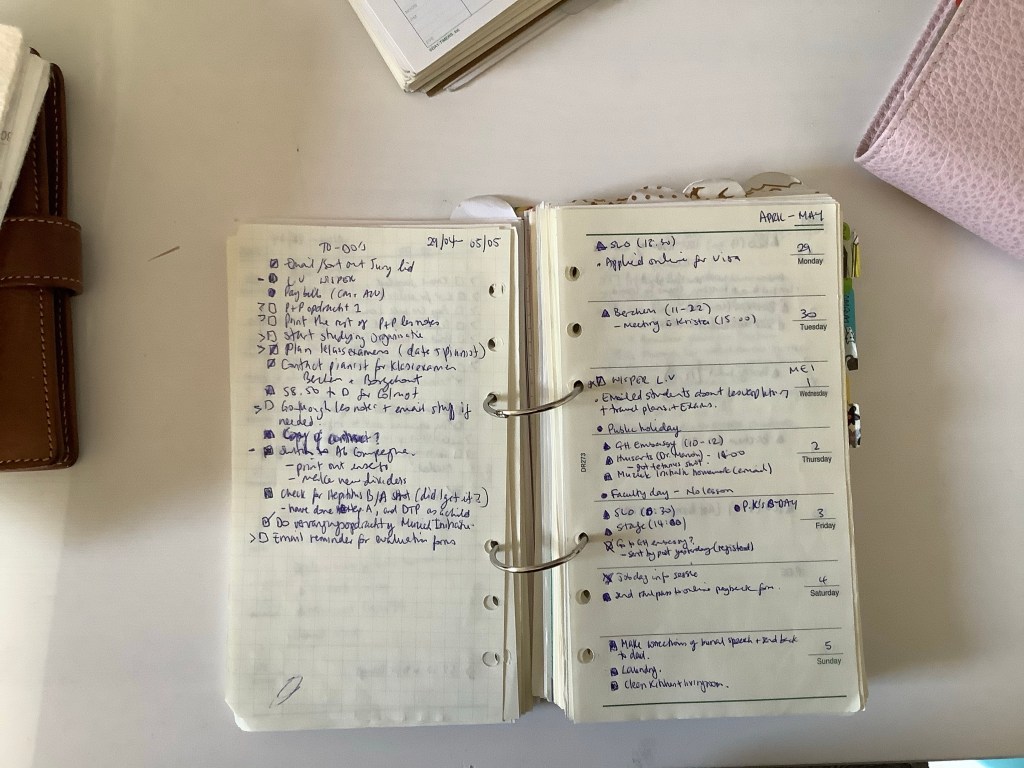 TO-DO'S 29/04 - 05/05
Email/sort out
L.V WISPER
Pay bills
P+P opdracht 1
Print the rest of P+P les notes
Start studying Organisatie
Plan klasexamens (date + pianist)
Contact pianist for klasexamen
Berchem + Borgerhout
58.50 to D for
Go through les notes + email stuff if
needed.
Copy of contract?
- print out
- make new dividers
Check for Hepititis B/A shot (did I get it?)
- have done A, and DTP as a child
Do Muziek Initiatie
Email reminder for evaluation forms
APRIL - MAY
SLO (18.30)
29
• Applied online for Visa
Monday
Berchem (11-22)
30
- Meeting c Krista (15:00)
Tuesday
MEI
WISPER L.V
1
• Emailed students about
Wednesday
+ travel plans + Exams.
• Public holiday
GH Embassy (10-12)
2
Thursday
- got tetanus shot
Muziek Initiatie homework (email)
DR273
• Faculty day - No lesson
SLO (8:30) • P.K's B-DAY
3
Stage (14:00)
Friday
Go to GH embassy?
- sent by post yesterday (registered)
Jobday info sessie
4
Send to online payback form.
Saturday
Make corrections of burial speech + send back
5
to dad.
Sunday
Laundry.
Clean kitchen + livingroom.